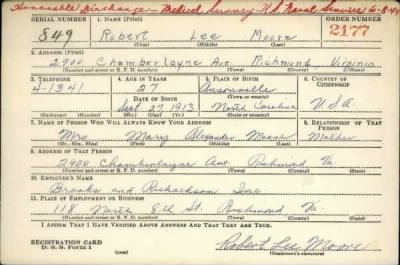 Honorable Discharge - Medical Survey U.S. Naval Service 6-8-44
SERIAL NUMBER 1. NAME (Print) ORDER NUMBER
849 Robert Lee Moore 2177
(First) (Middle) (Last)
2. ADDRESS (Print)
2900 Chamberlayne Ave Richmond, Virginia
(Number and street or R. F. D. number) (Town) (County) (State)
3. TELEPHONE 4. AGE IN YEARS 5. PLACE OF BIRTH 6. COUNTRY OF CITIZENSHIP
4-1341 27 Ansonville
DATE OF BIRTH (Town or county)
Sept 27 1913 North Carolina USA
(Exchange) (Number) (Mo.) (Day) (Yr.) (State or country)
7. NAME OF PERSON WHO WILL ALWAYS KNOW YOUR ADDRESS 8. RELATIONSHIP OF THAT PERSON
Mrs Mary Alexander Moore Mother
(Mr., Mrs., Miss) (First) (Middle) (Last)
9. ADDRESS OF THAT PERSON
2900 Chamberlayne Ave. Richmond Va
(Number and street or R. F. D. number) (Town) (County) (State)
10. EMPLOYER'S NAME
Brooks and Richardson Inc
11. PLACE OF EMPLOYMENT OR BUSINESS
118 North 8th St. Richmond Va.
(Number and street or R. F. D. number) (Town) (County) (State)
I AFFIRM THAT I HAVE VERIFIED ABOVE ANSWERS AND THAT THEY ARE TRUE.
REGISTRATION CARD
D. S. S. Form 1 (over) Robert Lee Moore
(Registrant's signature)